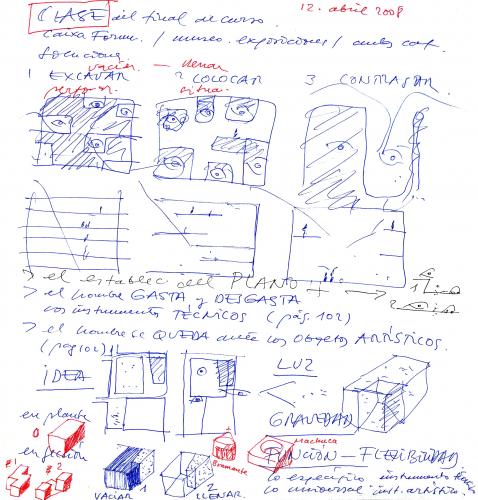 CLASE del final de curso.
12. abril 2008
Caixa Forum. / museo. exposiciones /
funciona
vaciar — llenar
1 EXCAVAR 2 COLOCAR 3 CONTRASTAR.
perforar. situar.
> el establec del PLANO
1
2
> el hombre GASTA y DESGASTA
los instrumentos TÉCNICOS (pág. 102)
> el hombre se QUEDA ante los objetos ARTÍSTICOS.
(pag 102)
IDEA
LUZ
GRAVEDAD
en planta
0
en sección
1 2 3
Bramante
Machuca
FUNCIÓN — FLEXIBILIDAD
lo específico instrumento técnico
lo universal inst. artístico.
VACIAR 1
2 LLENAR.